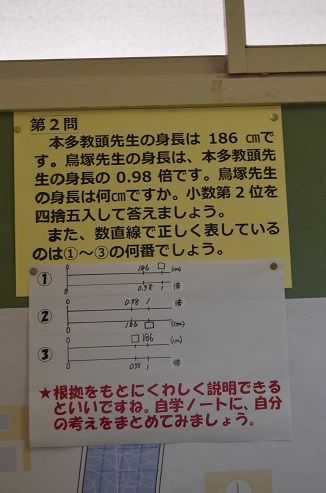 第２問
本多教頭先生の身長は 186 ㎝で
す。鳥塚先生の身長は、本多教頭先
生の身長の 0.98 倍です。鳥塚先生
の身長は何㎝ですか。小数第２位を
四捨五入して答えましょう。
また、数直線で正しく表している
のは①～③の何番でしょう。
① 0 186 □ (cm)
0 0.98 1 倍
② 0 0.98 1 倍
0 186 □ (cm)
③ 0 □ 186 (cm)
0 0.98 1 倍
★根拠をもとにくわしく説明できる
といいですね。自学ノートに、自分
の考えをまとめてみましょう。